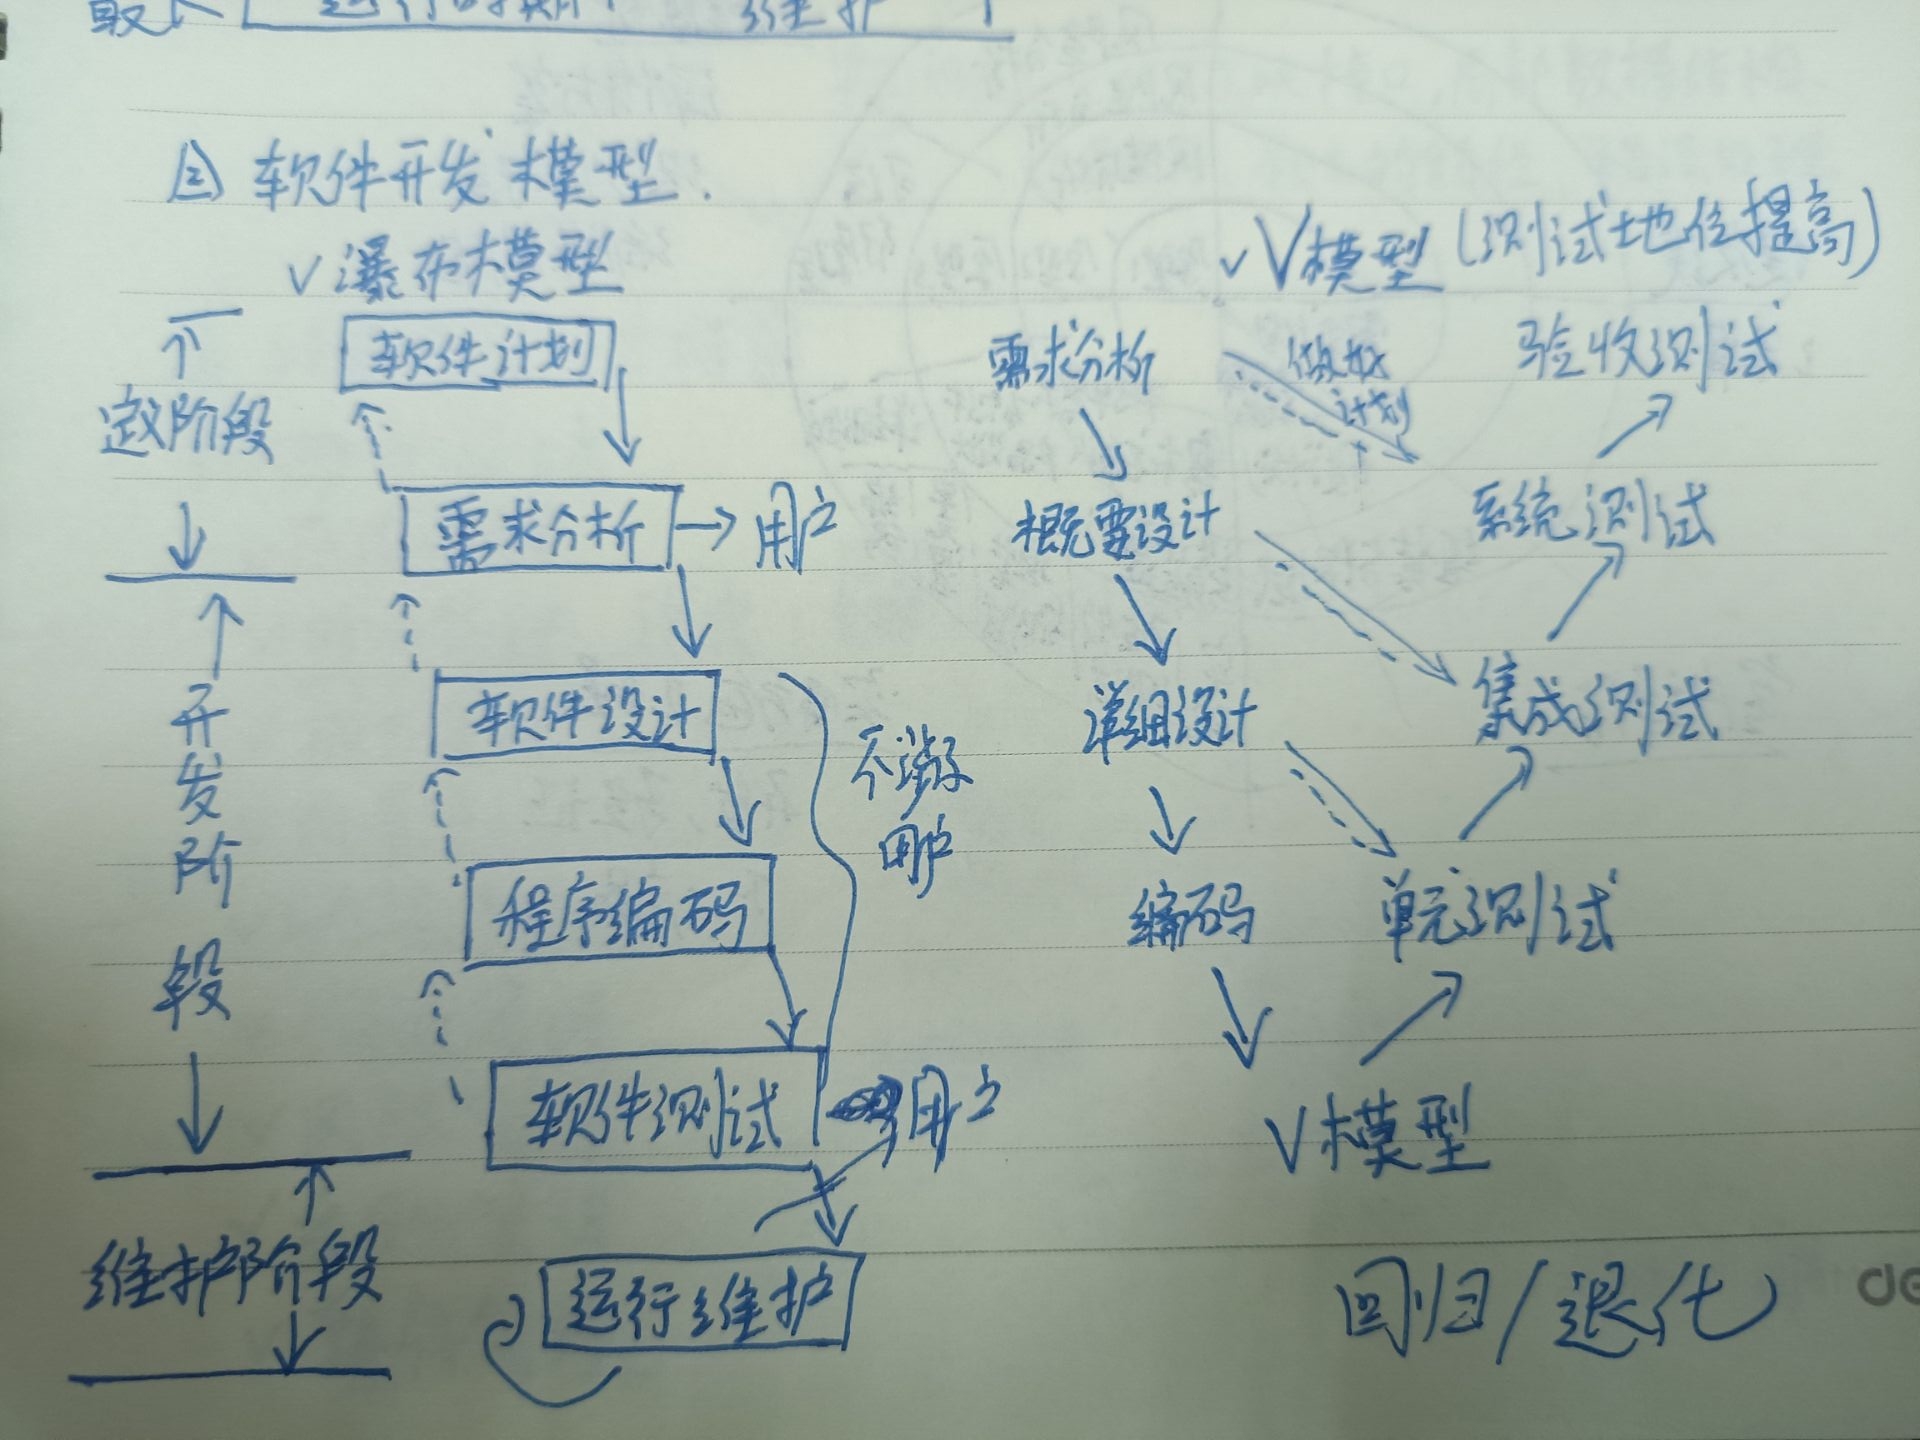 最长 运行时期 维护
② 软件开发模型.
√ 瀑布模型
软件计划
定义阶段
需求分析 → 用户
软件设计
开发阶段
不涉及
用户
程序编码
软件测试
用户
维护阶段
运行维护
√ V模型 (测试地位提高)
需求分析
做好
计划
验收测试
概要设计
系统测试
详细设计
集成测试
编码
单元测试
V模型
回归/退化
de